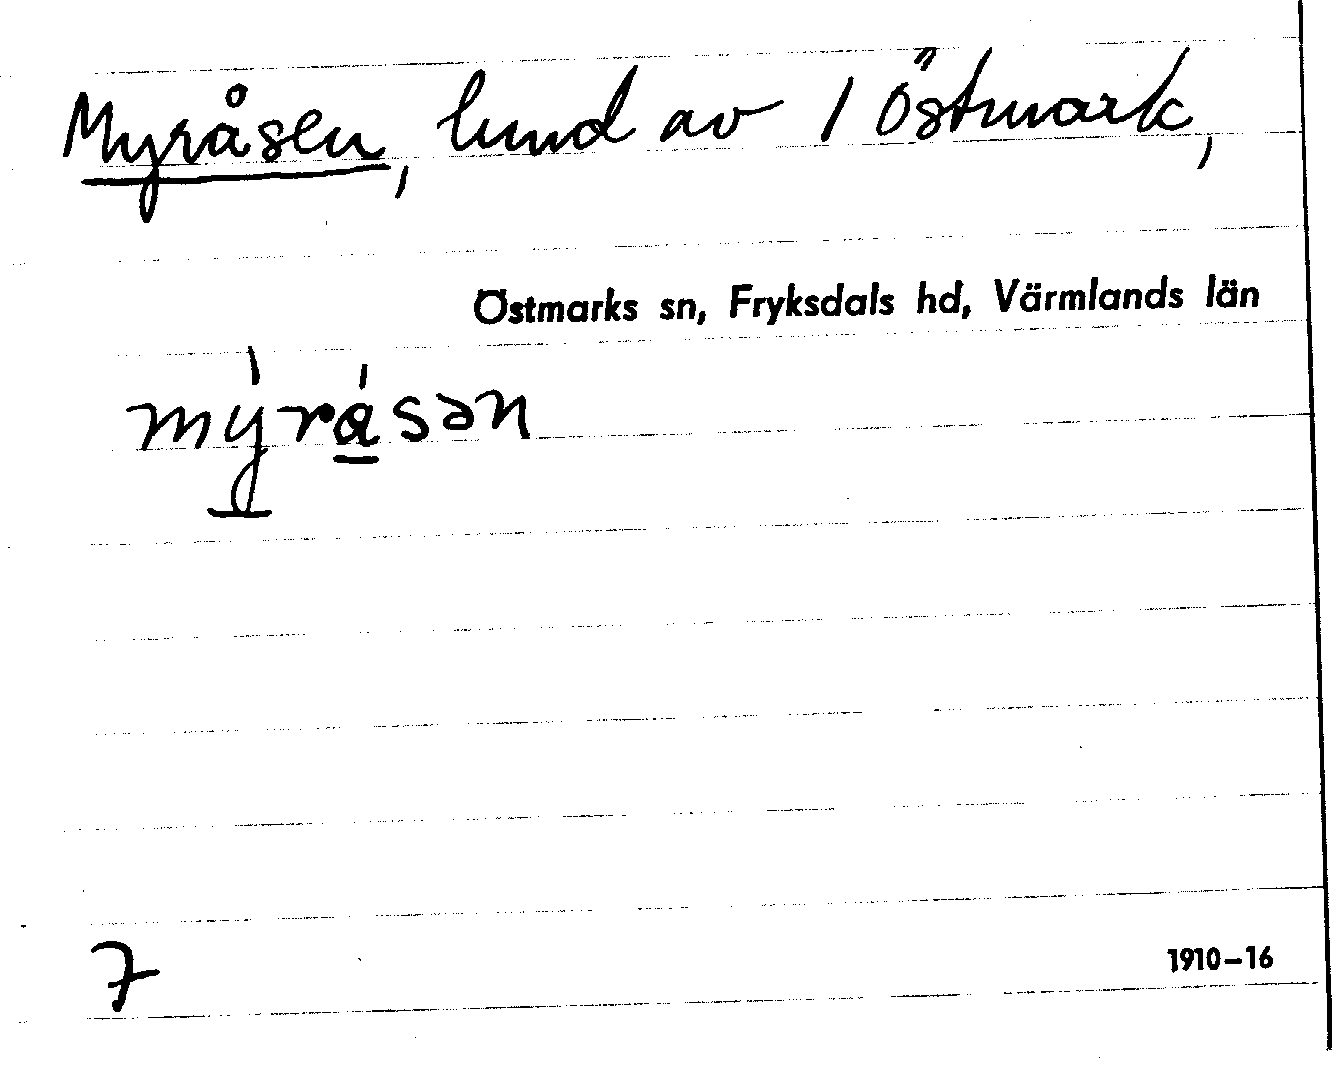 Myråsen, lund av 1 Östmark,
Östmarks sn, Fryksdals hd, Värmlands län
mýrásən
7
1910–16